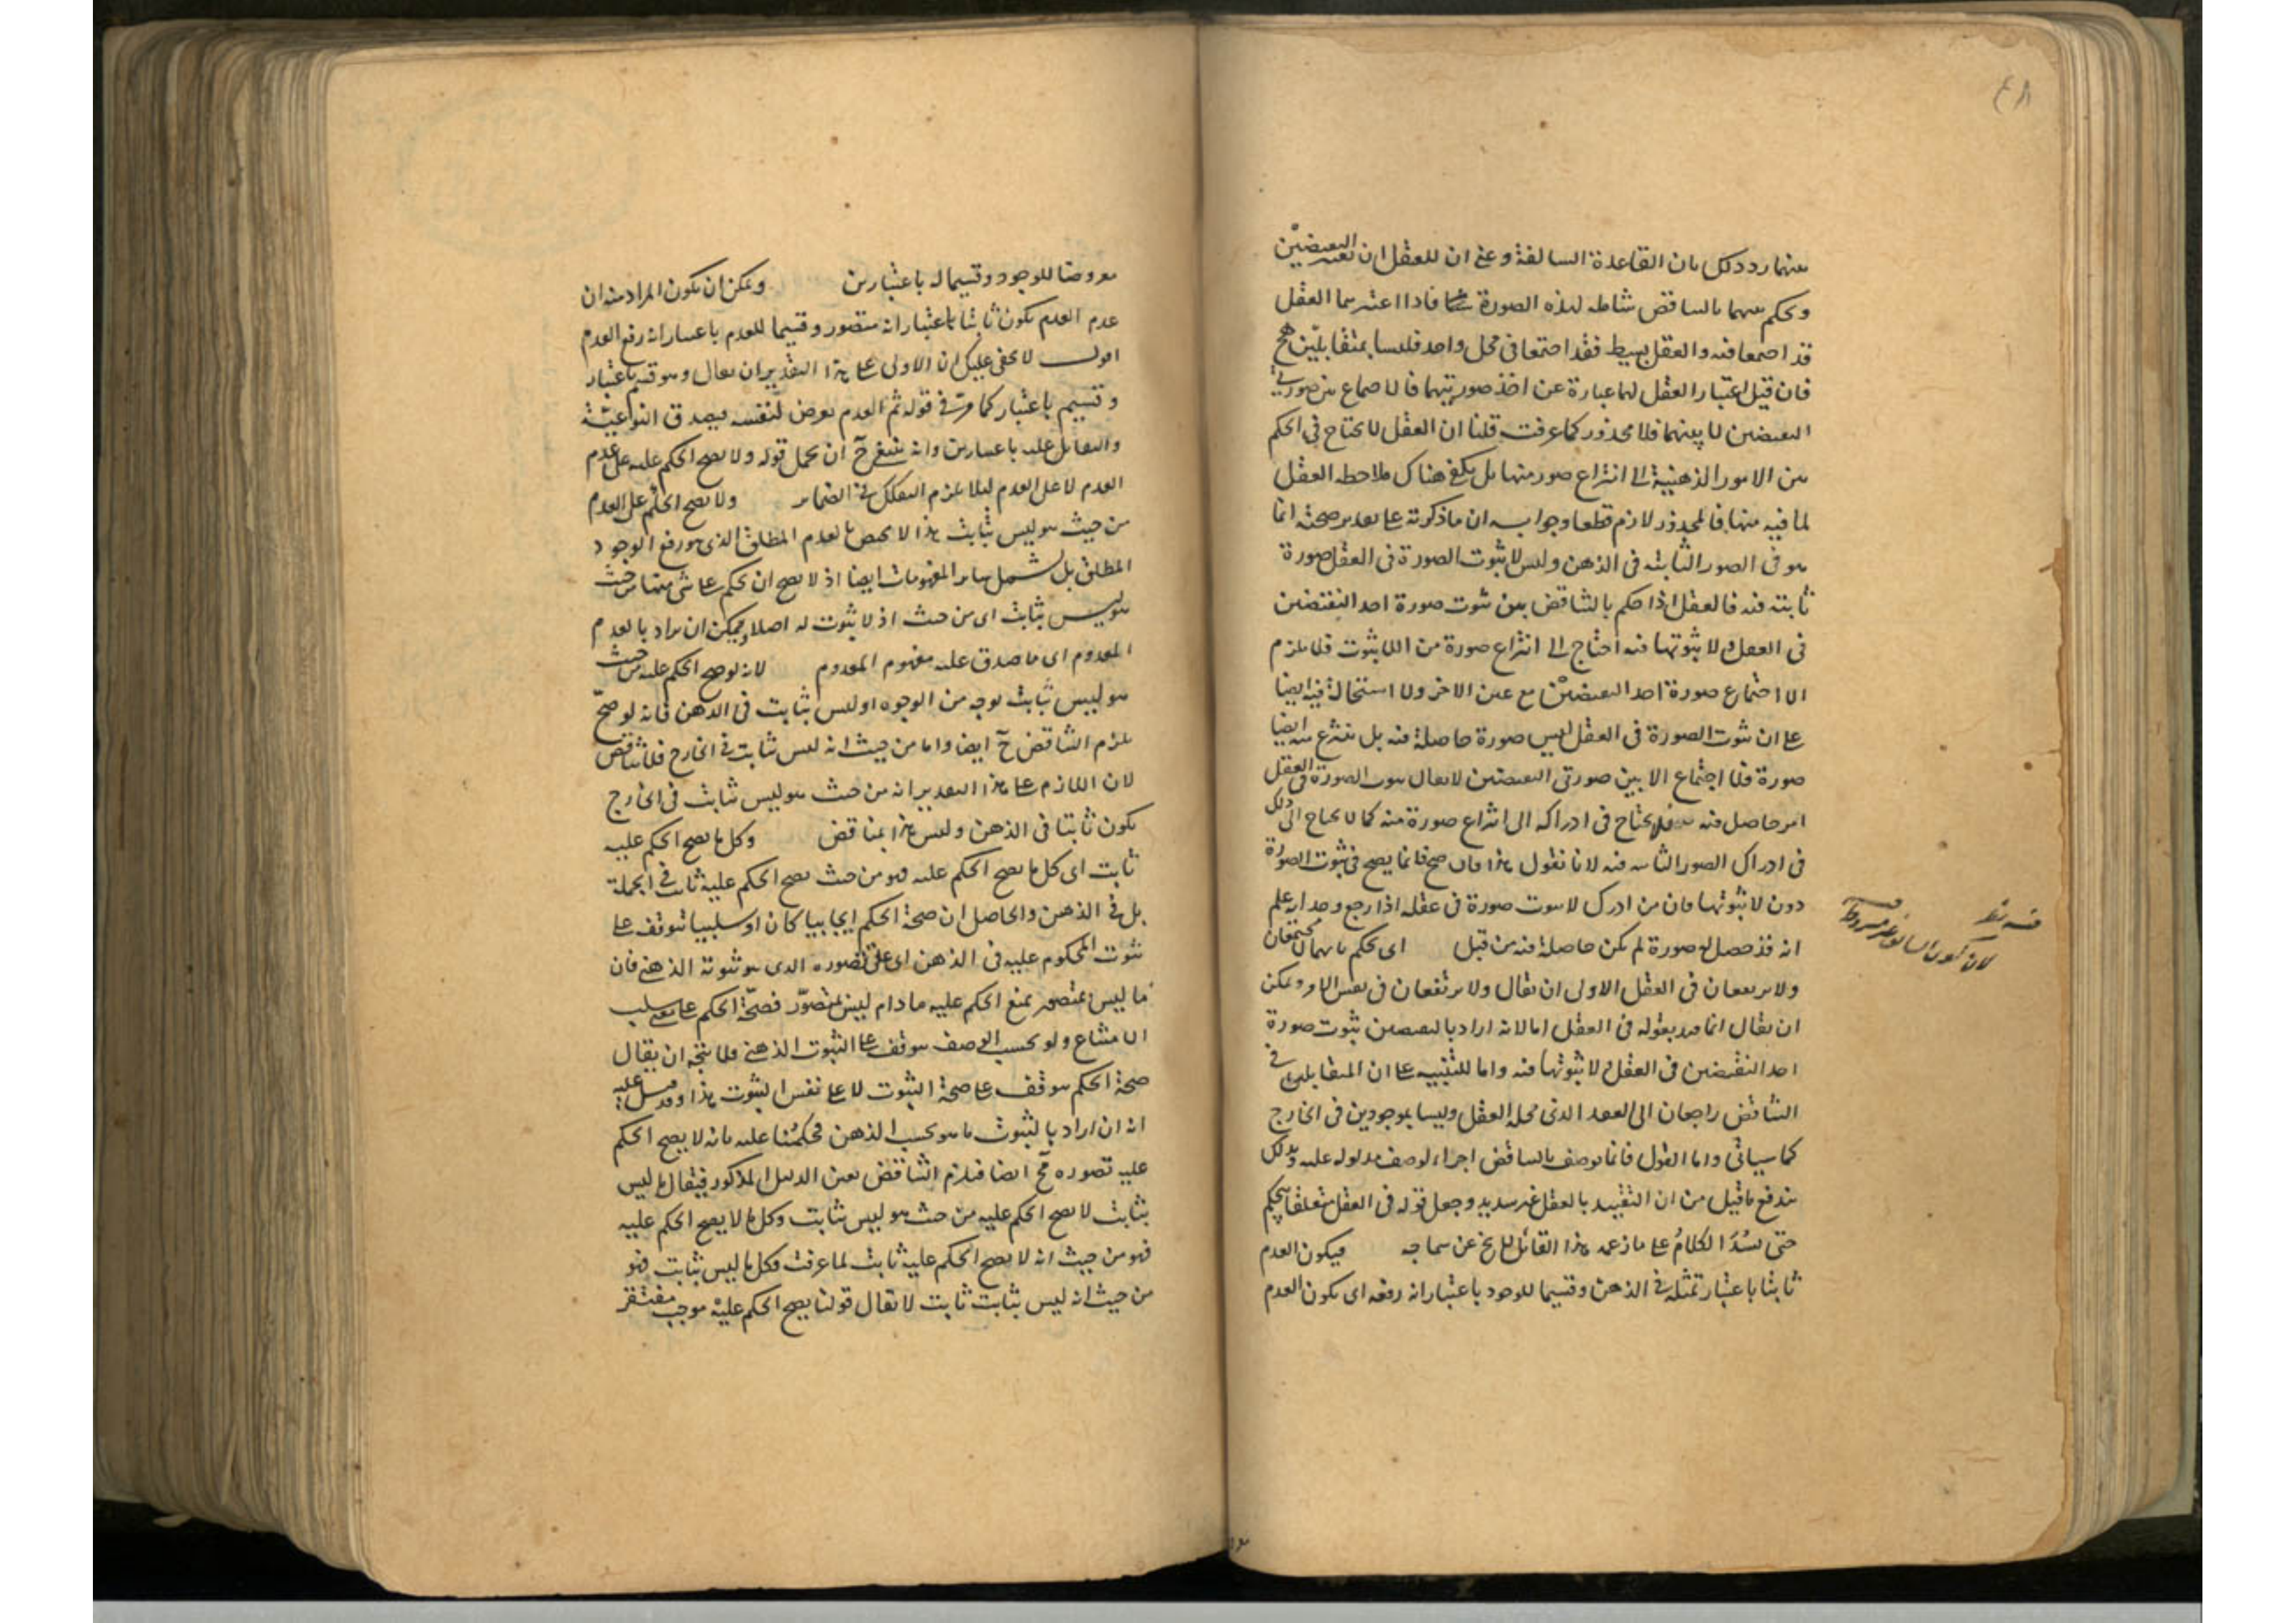 بينهما ردد ذلك بان القاعدة السالفة وهي ان للعقل ان يعتبر النقيضين
ويحكم بينهما بالتناقض شاملة لهذه الصورة ايضا فاذا اعتبرهما العقل
قد اجتمعا فيه والعقل بسيط فقد اجتمعا في محل واحد فليسا بمتقابلين هف
فان قيل اعتبار العقل لهما عبارة عن اخذ صورتيهما فالاجتماع بين صورتي
النقيضين لا بينهما فلا محذور كما عرفت قلنا ان العقل لا يحتاج في الحكم
بين الامور الذهنية الى انتزاع صور منها بل يكفي هناك ملاحظة العقل
لما فيه منها فالمحذور لازم قطعا وجوابه ان ما ذكرته على تقدير صحته انما
هو في الصور الثابتة في الذهن وليس لا ثبوت الصورة في العقل صورة
ثابتة فيه فالعقل اذا حكم بالتناقض بين ثبوت صورة احد النقيضين
في العقل ولا ثبوتها فيه احتاج الى انتزاع صورة من اللاثبوت فلا يلزم
الا اجتماع صورة احد النقيضين مع عين الاخر ولا استحالة فيه ايضا
على ان ثبوت الصورة في العقل ليس صورة حاصلة فيه بل ينتزع منه ايضا
صورة فلا اجتماع الا بين صورتي النقيضين لا يقال ثبوت الصورة في العقل
امر حاصل فيه فلا يحتاج في ادراكه الى انتزاع صورة منه كما لا يحتاج الى ذلك
في ادراك الصور الثابتة فيه لانا نقول هذا وان صح فانما يصح في ثبوت الصورة
دون لا ثبوتها فان من ادرك لا ثبوت صورة في عقله اذا رجع وجدانه علم
انه قد حصل له صورة لم تكن حاصلة فيه من قبل اي يحكم بانهما لا يجتمعان
ولا يرتفعان في العقل الاولى ان يقال ولا يرتفعان في نفس الامر ويمكن
ان يقال انما قيد بقوله في العقل اما لانه اراد بالنقيضين ثبوت صورة
احد النقيضين في العقل ولا ثبوتها فيه واما للتنبيه على ان المتقابلين في
التناقض راجعان الى العقد الذي محله العقل وليسا بموجودين في الخارج
كما سيأتي واما القول فانما يوصف بالتناقض اجراء لوصف مدلوله عليه وبذلك
يندفع ما قيل من ان التقييد بالعقل غير سديد وجعل قوله في العقل متعلقا بيحكم
حتى يسد الكلام على ما زعمه هذا القائل لا يخ عن سماجة فيكون العدم
ثابتا باعتبار تمثله في الذهن وقسيما للوجود باعتبار انه رفعه اي يكون العدم
معروضا للوجود وقسيما له باعتبارين ويمكن ان يكون المراد منه ان
عدم العدم يكون ثابتا باعتبار انه متصور وقسيما للعدم باعتبار انه رفع العدم
اقول لا يخفى عليك ان الاولى على هذا التقدير ان يقال وهو قسم باعتبار
وقسيم باعتبار كما مر في قوله ثم العدم يعرض لنفسه فيصدق النوعية
والتقابل عليه باعتبارين وانه ينبغي ح ان يحمل قوله ولا يصح الحكم عليه على عدم
العدم لا على العدم ليلا يلزم التفكك في الضماير ولا يصح الحكم على العدم
من حيث هو ليس بثابت هذا لا يختص بالعدم المطلق الذي هو رفع الوجود
المطلق بل يشمل ساير المفهومات ايضا اذ لا يصح ان يحكم على شئ منها من حيث
هو ليس بثابت اي من حيث اذ لا ثبوت له اصلا ويمكن ان يراد بالعدم
المعدوم اي ما صدق عليه مفهوم المعدوم لانه لو صح الحكم عليه من حيث
هو ليس بثابت بوجه من الوجوه او ليس بثابت في الذهن فانه لو صح
يلزم التناقض ح ايضا واما من حيث انه ليس ثابت في الخارج فلا تناقض
لان اللازم على هذا التقدير انه من حيث هو ليس ثابت في الخارج
يكون ثابتا في الذهن وليس هذا بمناقض وكل ما يصح الحكم عليه
ثابت اي كل ما يصح الحكم عليه فهو من حيث يصح الحكم عليه ثابت في الجملة
بل في الذهن والحاصل ان صحة الحكم ايجابيا كان او سلبيا تتوقف على
ثبوت المحكوم عليه في الذهن اي على تصوره الذي هو ثبوته الذهني فان
ما ليس بمتصور يمنع الحكم عليه ما دام ليس بمتصور فصحة الحكم على معنى سلب
الامتناع ولو بحسب الوصف موقف على الثبوت الذهني فلا يتجه ان يقال
صحة الحكم موقف على صحة الثبوت لا على نفس الثبوت هذا وقد قيل عليه
انه ان اراد بالثبوت ما هو بحسب الذهن فحكمنا عليه بانه لا يصح الحكم
عليه تصوره فح ايضا فيلزم التناقض بعين الدليل المذكور فيقال ما ليس
بثابت لا يصح الحكم عليه من حيث هو ليس بثابت وكل ما لا يصح الحكم عليه
فهو من حيث انه لا يصح الحكم عليه ثابت لما عرفت فكل ما ليس بثابت فهو
من حيث انه ليس بثابت ثابت لا يقال قولنا يصح الحكم عليه موجب مفتقر